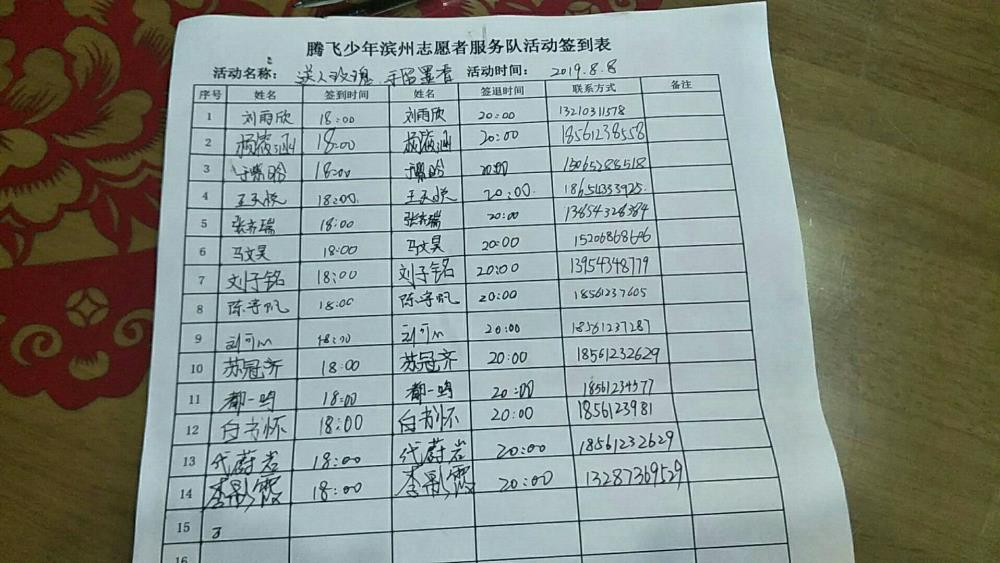 腾飞少年滨州志愿者服务队活动签到表
活动名称： 送人玫瑰 手留墨香 活动时间： 2019.8.8
序号 姓名 签到时间 姓名 签退时间 联系方式 备注
1 刘雨欣 18:00 刘雨欣 20:00 13210311578
2 18:00 20:00 18561238558
3 18:00 20:00 15065288518
4 王天悦 18:00 王天悦 20:00 18654333925
5 18:00 20:00 13854328384
6 马文昊 18:00 马文昊 20:00 15206868606
7 刘子铭 18:00 刘子铭 20:00 13954348779
8 陈宇帆 18:00 陈宇帆 20:00 18561237605
9 18:00 20:00 18561237287
10 苏冠齐 18:00 苏冠齐 20:00 18561232629
11 都一鸣 18:00 都一鸣 20:00 18561234377
12 白书怀 18:00 白书怀 20:00 1856123981
13 代蔚岩 18:00 代蔚岩 20:00 18561232629
14 李影霞 18:00 李影霞 20:00 13287369529
15
16